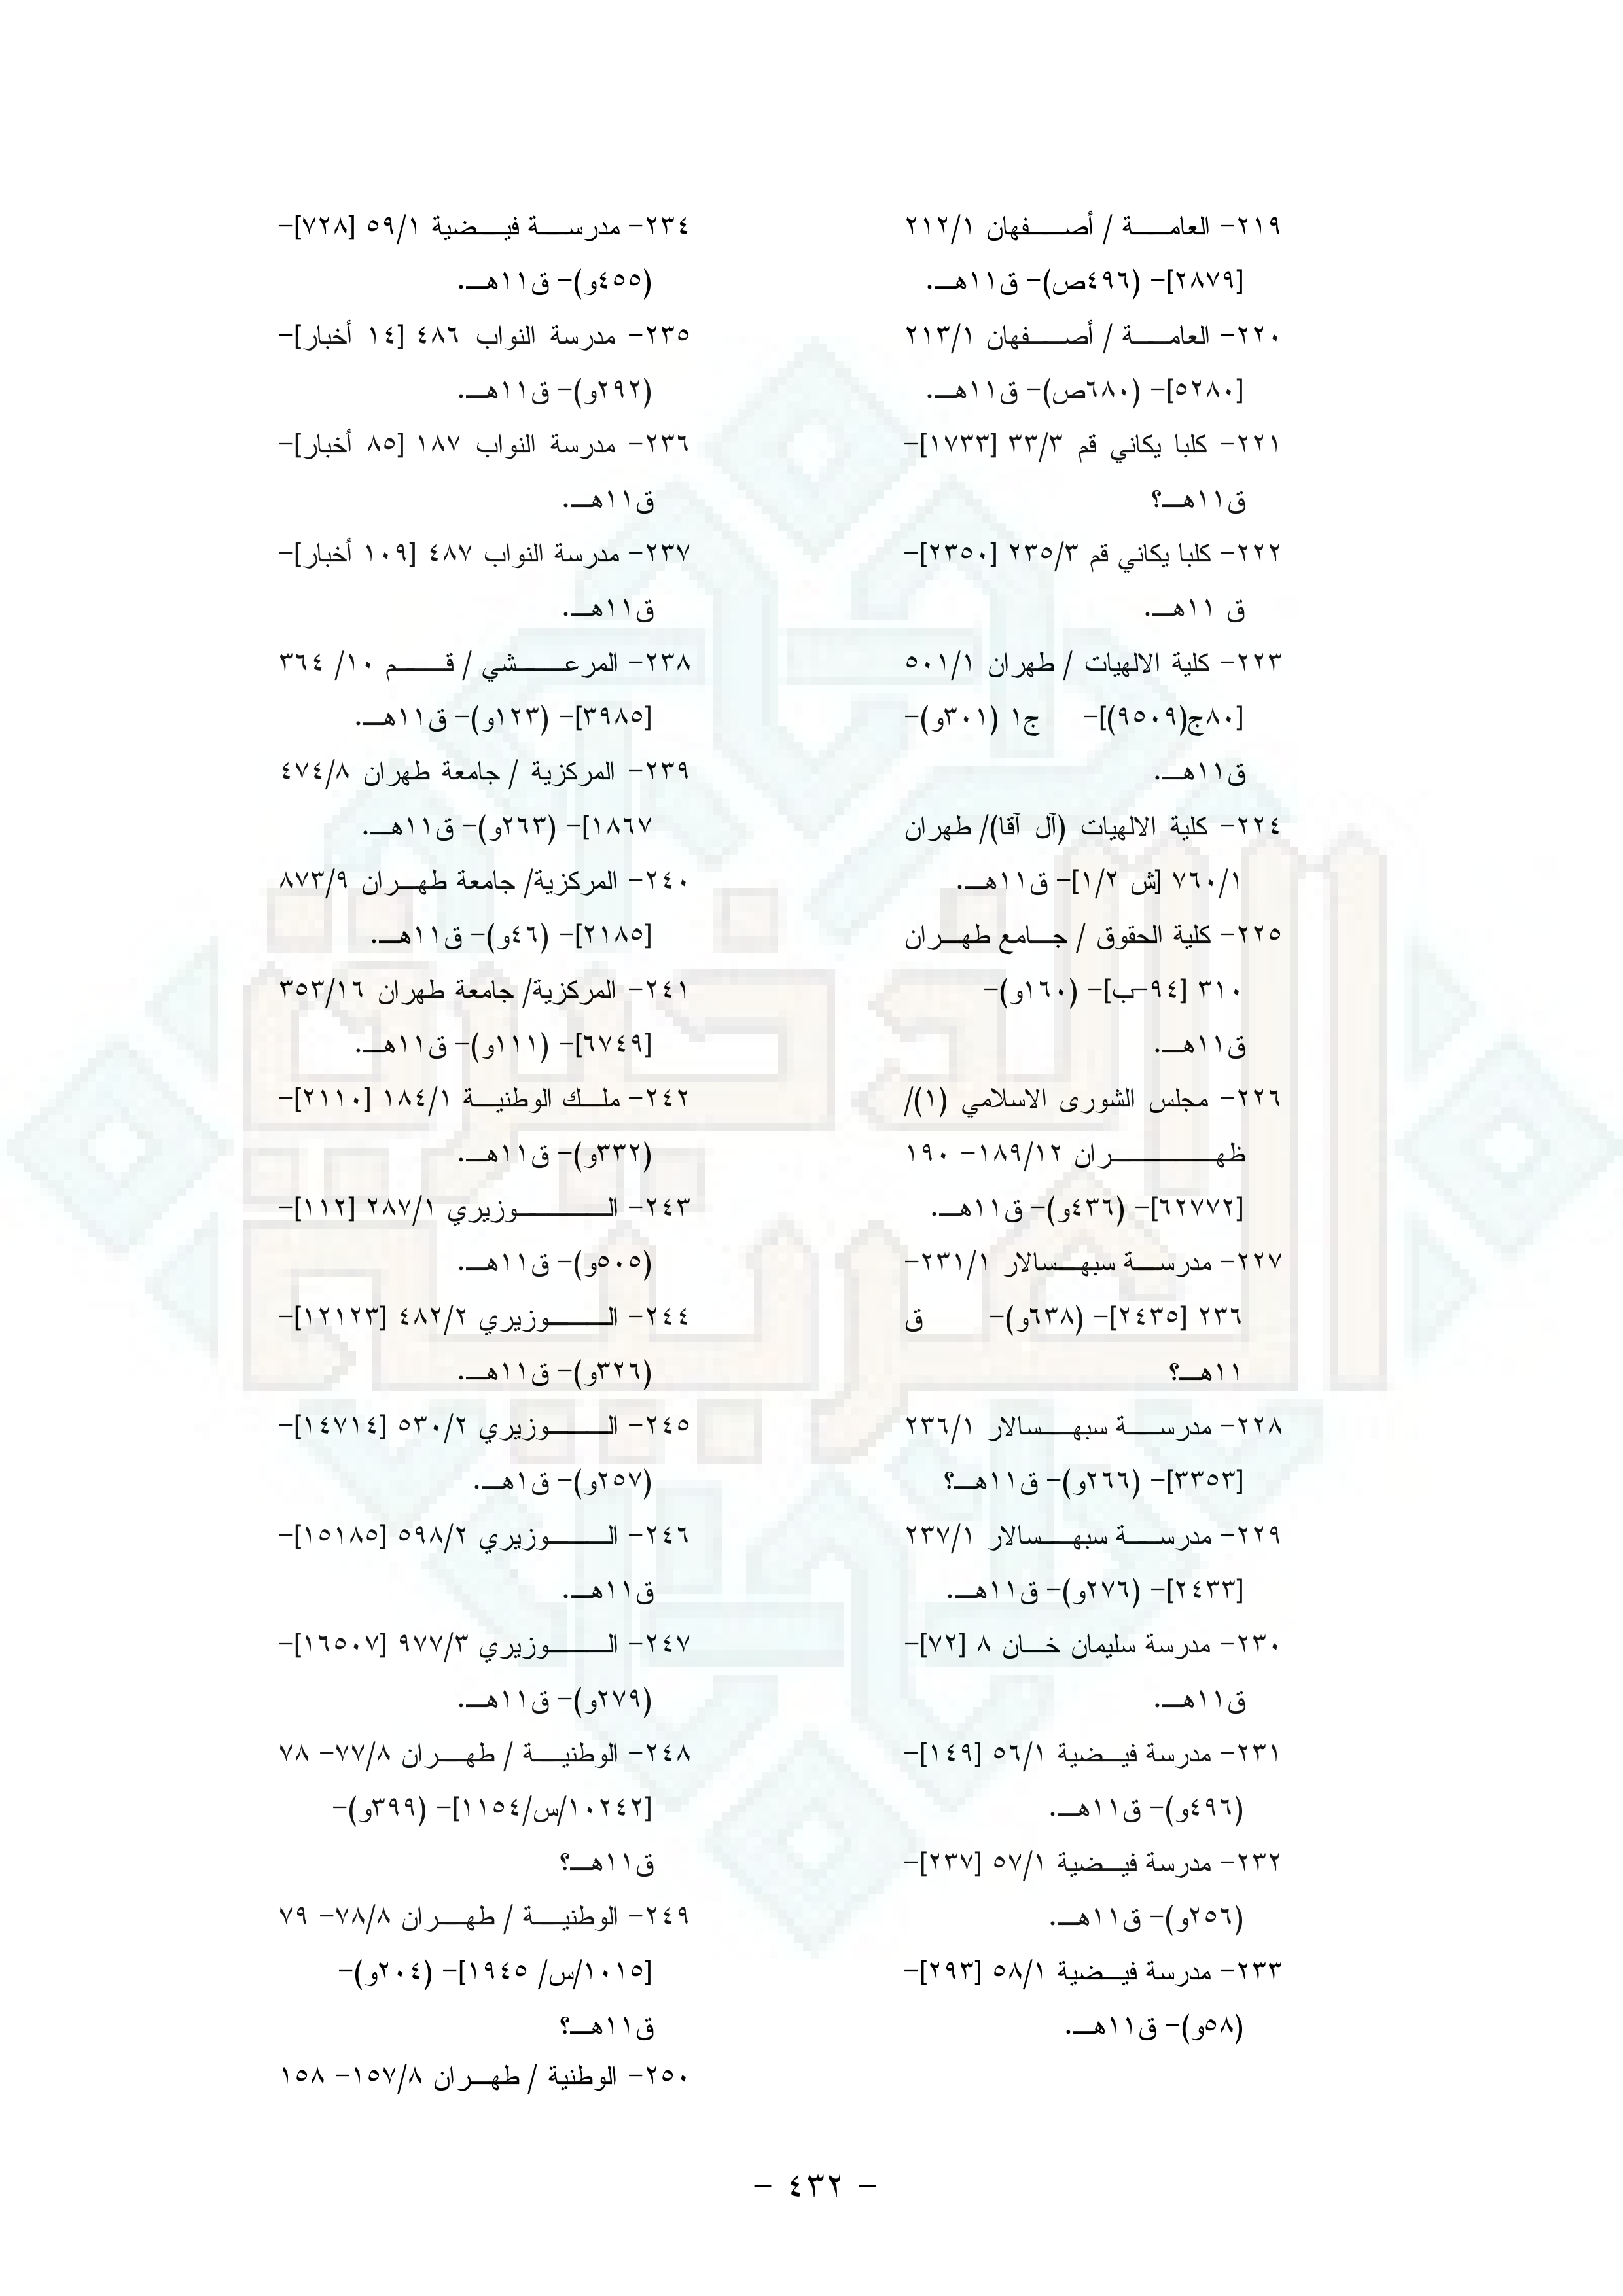 ٢١٩- العامة / أصفهان ٢١٢/١
[٢٨٧٩]- (٤٩٦ص)- ق١١هـ.
٢٢٠- العامة / أصفهان ٢١٣/١
[٥٢٨٠]- (٦٨٠ص)- ق١١هـ.
٢٢١- كلبا يكاني قم ٣٣/٣ [١٧٣٣]-
ق١١هـ؟
٢٢٢- كلبا يكاني قم ٢٣٥/٣ [٢٣٥٠]-
ق ١١هـ.
٢٢٣- كلية الالهيات / طهران ٥٠١/١
[٨٠ج(٩٥٠٩)]- ج١ (٣٠١و)-
ق١١هـ.
٢٢٤- كلية الالهيات (آل آقا)/ طهران
٧٦٠/١ [ش ١/٢]- ق١١هـ.
٢٢٥- كلية الحقوق / جامع طهران
٣١٠ [٩٤-ب]- (١٦٠و)-
ق١١هـ.
٢٢٦- مجلس الشورى الاسلامي (١)/
ظهران ١٨٩/١٢- ١٩٠
[٦٢٧٧٢]- (٤٣٦و)- ق١١هـ.
٢٢٧- مدرسة سبهسالار ٢٣١/١-
٢٣٦ [٢٤٣٥]- (٦٣٨و)- ق
١١هـ؟
٢٢٨- مدرسة سبهسالار ٢٣٦/١
[٣٣٥٣]- (٢٦٦و)- ق١١هـ؟
٢٢٩- مدرسة سبهسالار ٢٣٧/١
[٢٤٣٣]- (٢٧٦و)- ق١١هـ.
٢٣٠- مدرسة سليمان خان ٨ [٧٢]-
ق١١هـ.
٢٣١- مدرسة فيضية ٥٦/١ [١٤٩]-
(٤٩٦و)- ق١١هـ.
٢٣٢- مدرسة فيضية ٥٧/١ [٢٣٧]-
(٢٥٦و)- ق١١هـ.
٢٣٣- مدرسة فيضية ٥٨/١ [٢٩٣]-
(٥٨و)- ق١١هـ.
٢٣٤- مدرسة فيضية ٥٩/١ [٧٢٨]-
(٤٥٥و)- ق١١هـ.
٢٣٥- مدرسة النواب ٤٨٦ [١٤ أخبار]-
(٢٩٢و)- ق١١هـ.
٢٣٦- مدرسة النواب ١٨٧ [٨٥ أخبار]-
ق١١هـ.
٢٣٧- مدرسة النواب ٤٨٧ [١٠٩ أخبار]-
ق١١هـ.
٢٣٨- المرعشي / قم ١٠/ ٣٦٤
[٣٩٨٥]- (١٢٣و)- ق١١هـ.
٢٣٩- المركزية / جامعة طهران ٤٧٤/٨
١٨٦٧]- (٢٦٣و)- ق١١هـ.
٢٤٠- المركزية/ جامعة طهران ٨٧٣/٩
[٢١٨٥]- (٤٦و)- ق١١هـ.
٢٤١- المركزية/ جامعة طهران ٣٥٣/١٦
[٦٧٤٩]- (١١١و)- ق١١هـ.
٢٤٢- ملك الوطنية ١٨٤/١ [٢١١٠]-
(٣٣٢و)- ق١١هـ.
٢٤٣- الوزيري ٢٨٧/١ [١١٢]-
(٥٠٥و)- ق١١هـ.
٢٤٤- الوزيري ٤٨٢/٢ [١٢١٢٣]-
(٣٢٦و)- ق١١هـ.
٢٤٥- الوزيري ٥٣٠/٢ [١٤٧١٤]-
(٢٥٧و)- ق١هـ.
٢٤٦- الوزيري ٥٩٨/٢ [١٥١٨٥]-
ق١١هـ.
٢٤٧- الوزيري ٩٧٧/٣ [١٦٥٠٧]-
(٢٧٩و)- ق١١هـ.
٢٤٨- الوطنية / طهران ٧٧/٨- ٧٨
[١٠٢٤٢/س/١١٥٤]- (٣٩٩و)-
ق١١هـ؟
٢٤٩- الوطنية / طهران ٧٨/٨- ٧٩
[١٠١٥/س/ ١٩٤٥]- (٢٠٤و)-
ق١١هـ؟
٢٥٠- الوطنية / طهران ١٥٧/٨- ١٥٨
- ٤٣٢ -